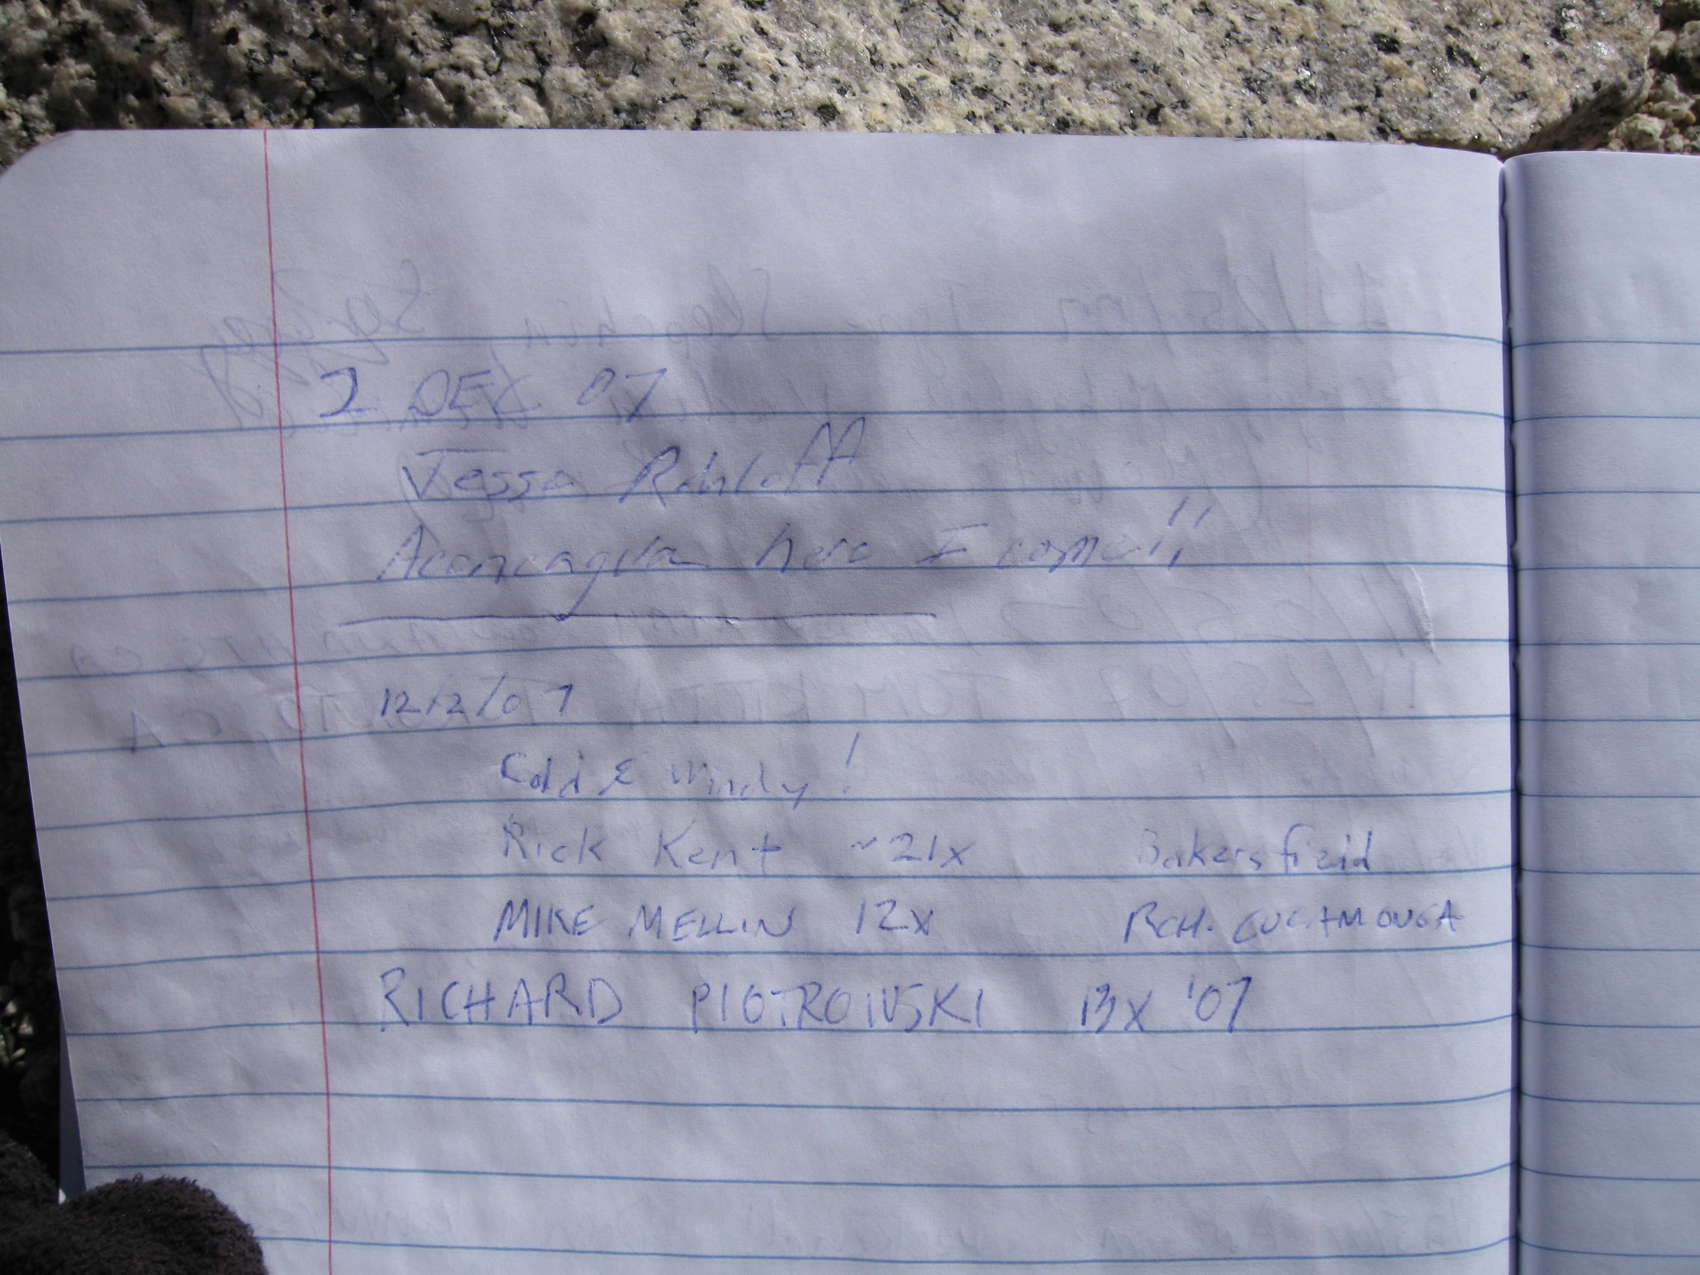 2 DEC 07
Jesse Rohloff
Aconcagua here I come!!
12/2/07
Cold & windy!
Rick Kent ~21x Bakersfield
MIKE MELLIN 12x RCH. CUCAMONGA
RICHARD PIOTROWSKI 13X '07